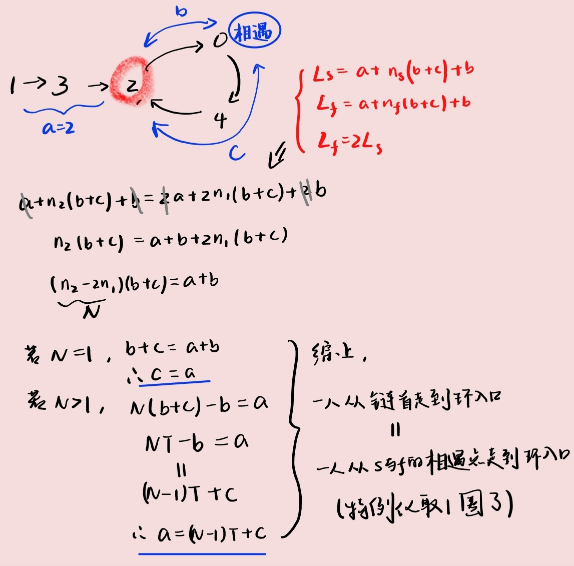 b
0 相遇
1→3→2
a=2
4
c
Ls = a + ns(b+c)+b
Lf = a+nf(b+c)+b
Lf=2Ls
a+n₂(b+c)+b=2a+2n₁(b+c)+2b
n₂(b+c) = a+b+2n₁(b+c)
(n₂-2n₁)(b+c)=a+b
N
若 N=1, b+c=a+b
∴ c=a
若 N>1, N(b+c)-b=a
NT-b=a
=
(N-1)T+c
∴ a=(N-1)T+c
综上,
一人从链首走到环入口
=
一人从s与f的相遇点走到环入口
(特例仅取1圈了)